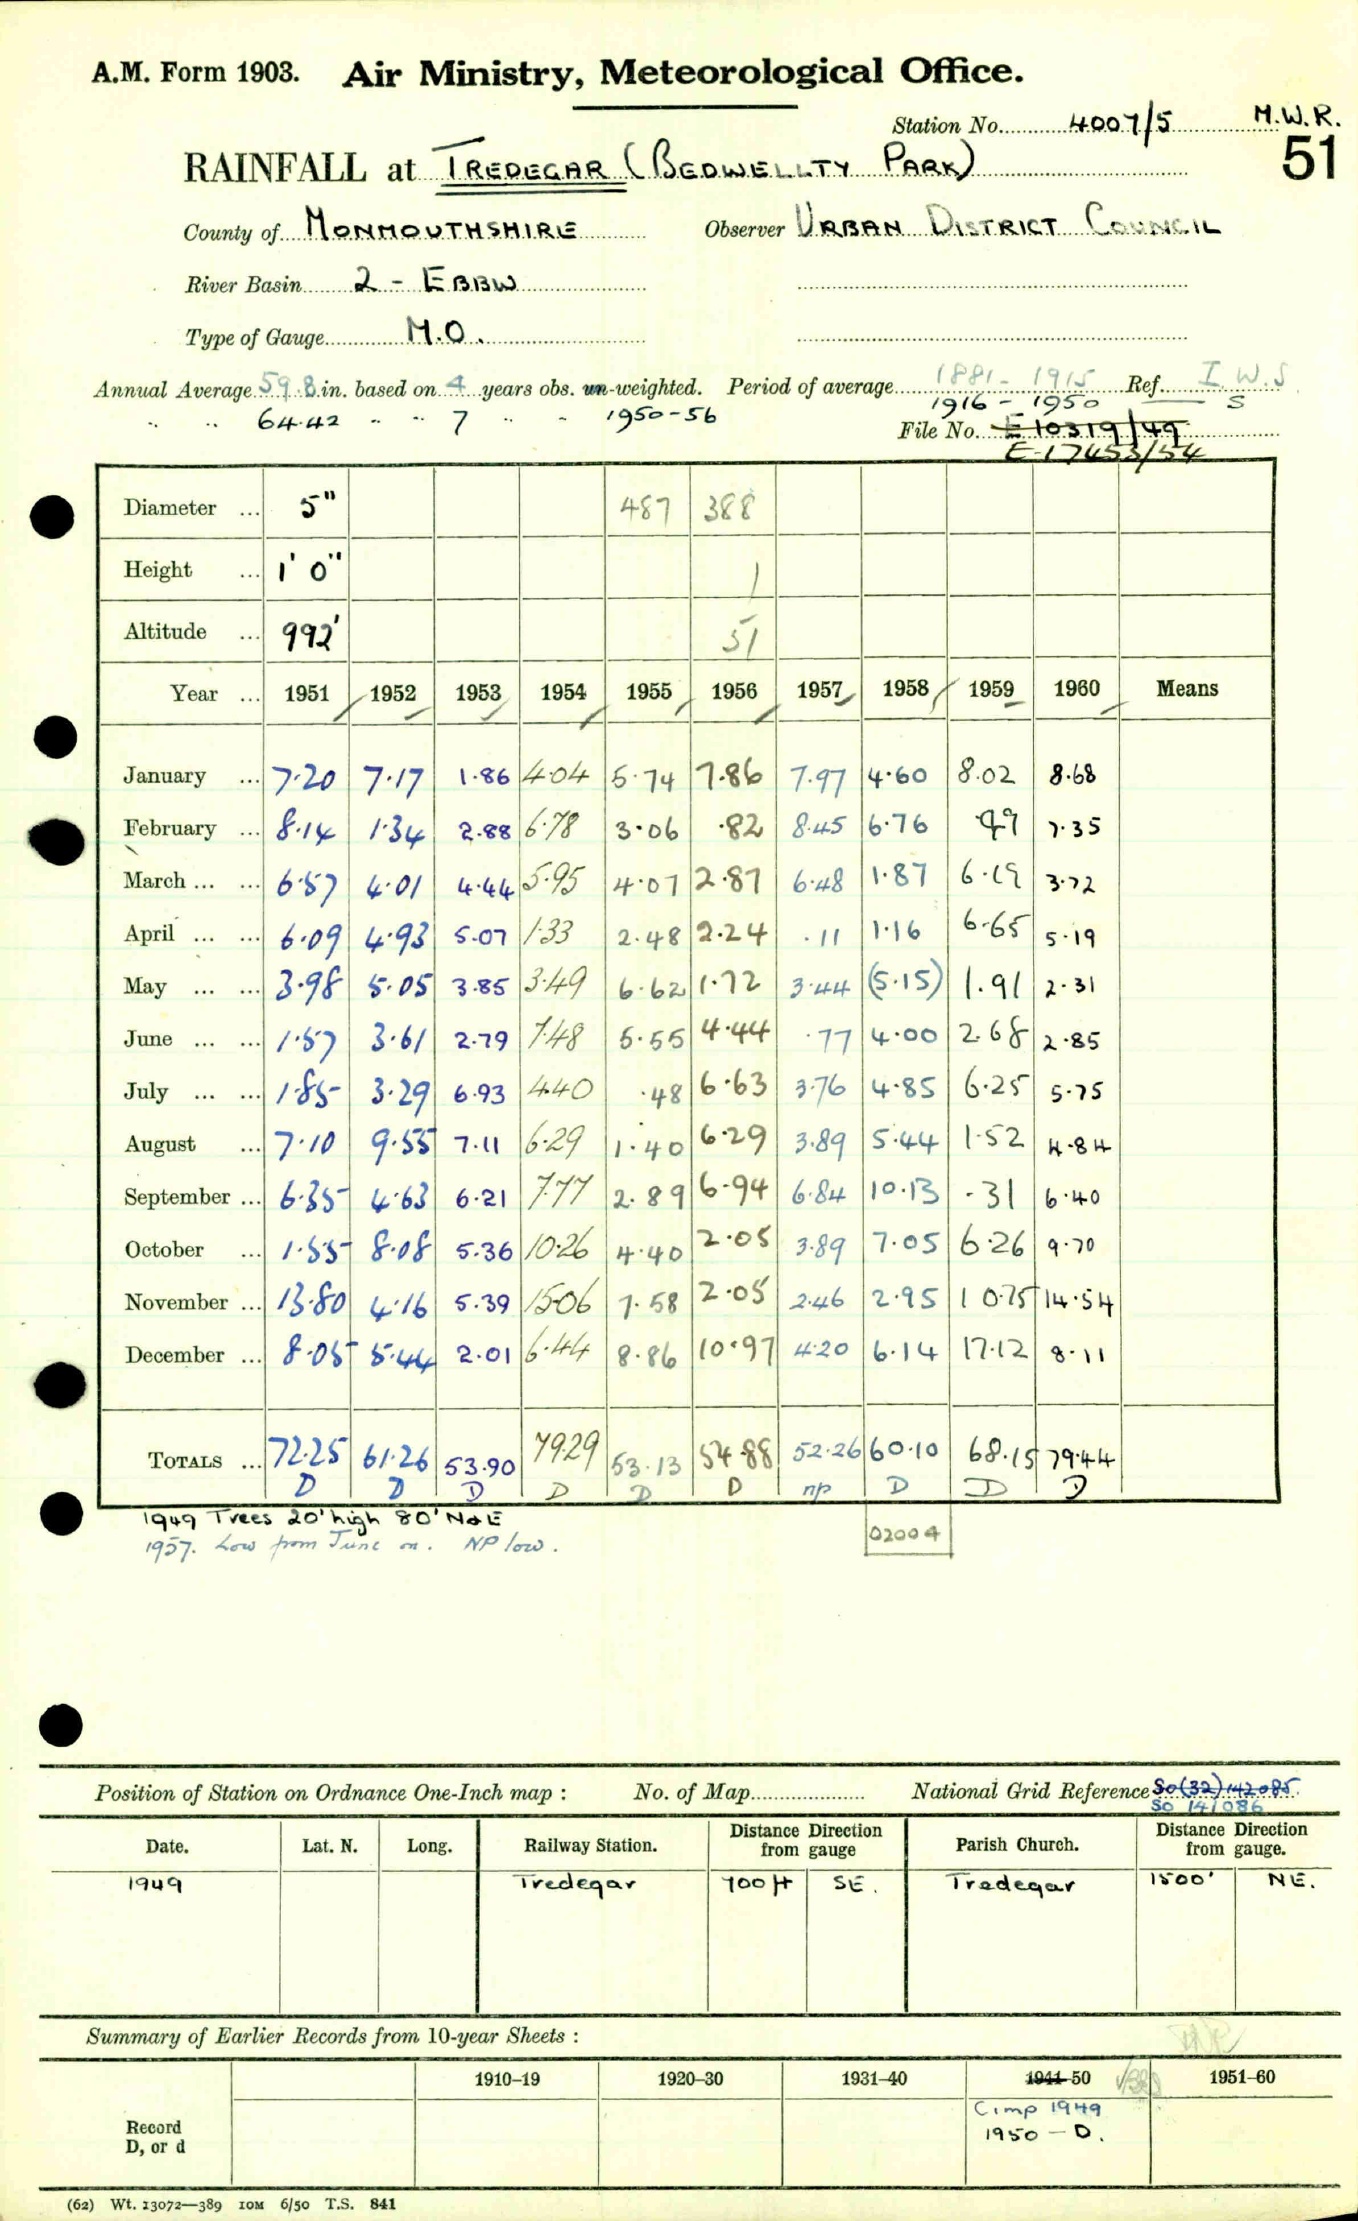 A.M. Form 1903. Air Ministry, Meteorological Office.
Station No. 4007/5 M.W.R.
51
RAINFALL at TREDEGAR (BEDWELLTY PARK)
County of MONMOUTHSHIRE Observer URBAN DISTRICT COUNCIL
River Basin 2 - EBBW
Type of Gauge M.O.
Annual Average 59.8 in. based on 4 years obs. un-weighted. Period of average 1881-1915 Ref. I.W.S
" " 64.42 " " 7 " " 1950-56 1916 - 1950 S
File No. E 10319/49
E.17453/54
Diameter ... 5" 487 388
Height ... 1' 0" 1
Altitude ... 992' 51
Year ... 1951 1952 1953 1954 1955 1956 1957 1958 1959 1960 Means
January ... 7.20 7.17 1.86 4.04 5.74 7.86 7.97 4.60 8.02 8.68
February ... 8.14 1.34 2.88 6.78 3.06 .82 8.45 6.76 .49 7.35
March ... ... 6.57 4.01 4.44 5.95 4.07 2.87 6.48 1.87 6.19 3.72
April ... ... 6.09 4.93 5.07 1.33 2.48 2.24 .11 1.16 6.65 5.19
May ... ... 3.98 5.05 3.85 3.49 6.62 1.72 3.44 (5.15) 1.91 2.31
June ... ... 1.57 3.61 2.79 7.48 5.55 4.44 .77 4.00 2.68 2.85
July ... ... 1.85 3.29 6.93 4.40 .48 6.63 3.76 4.85 6.25 5.75
August ... 7.10 9.55 7.11 6.29 1.40 6.29 3.89 5.44 1.52 4.84
September ... 6.35 4.63 6.21 7.77 2.89 6.94 6.84 10.13 .31 6.40
October ... 1.55 8.08 5.36 10.26 4.40 2.05 3.89 7.05 6.26 9.70
November ... 13.80 4.16 5.39 15.06 7.58 2.05 2.46 2.95 10.75 14.54
December ... 8.05 5.44 2.01 6.44 8.86 10.97 4.20 6.14 17.12 8.11
TOTALS ... 72.25 61.26 53.90 79.29 53.13 54.88 52.26 60.10 68.15 79.44
D D D D D D np D D D
1949 Trees 20' high 80' N & E
1957. Low from June on. NP low.
02004
Position of Station on Ordnance One-Inch map : No. of Map National Grid Reference SO(32) 142085
SO 141086
Date. Lat. N. Long. Railway Station. Distance Direction from gauge Parish Church. Distance Direction from gauge.
1949 Tredegar 700 ft SE. Tredegar 1500' NE.
Summary of Earlier Records from 10-year Sheets :
1910–19 1920–30 1931–40 1941-50 1951–60
Record
D, or d
Comp 1949
1950 - D.
(62) Wt. 13072—389 10M 6/50 T.S. 841